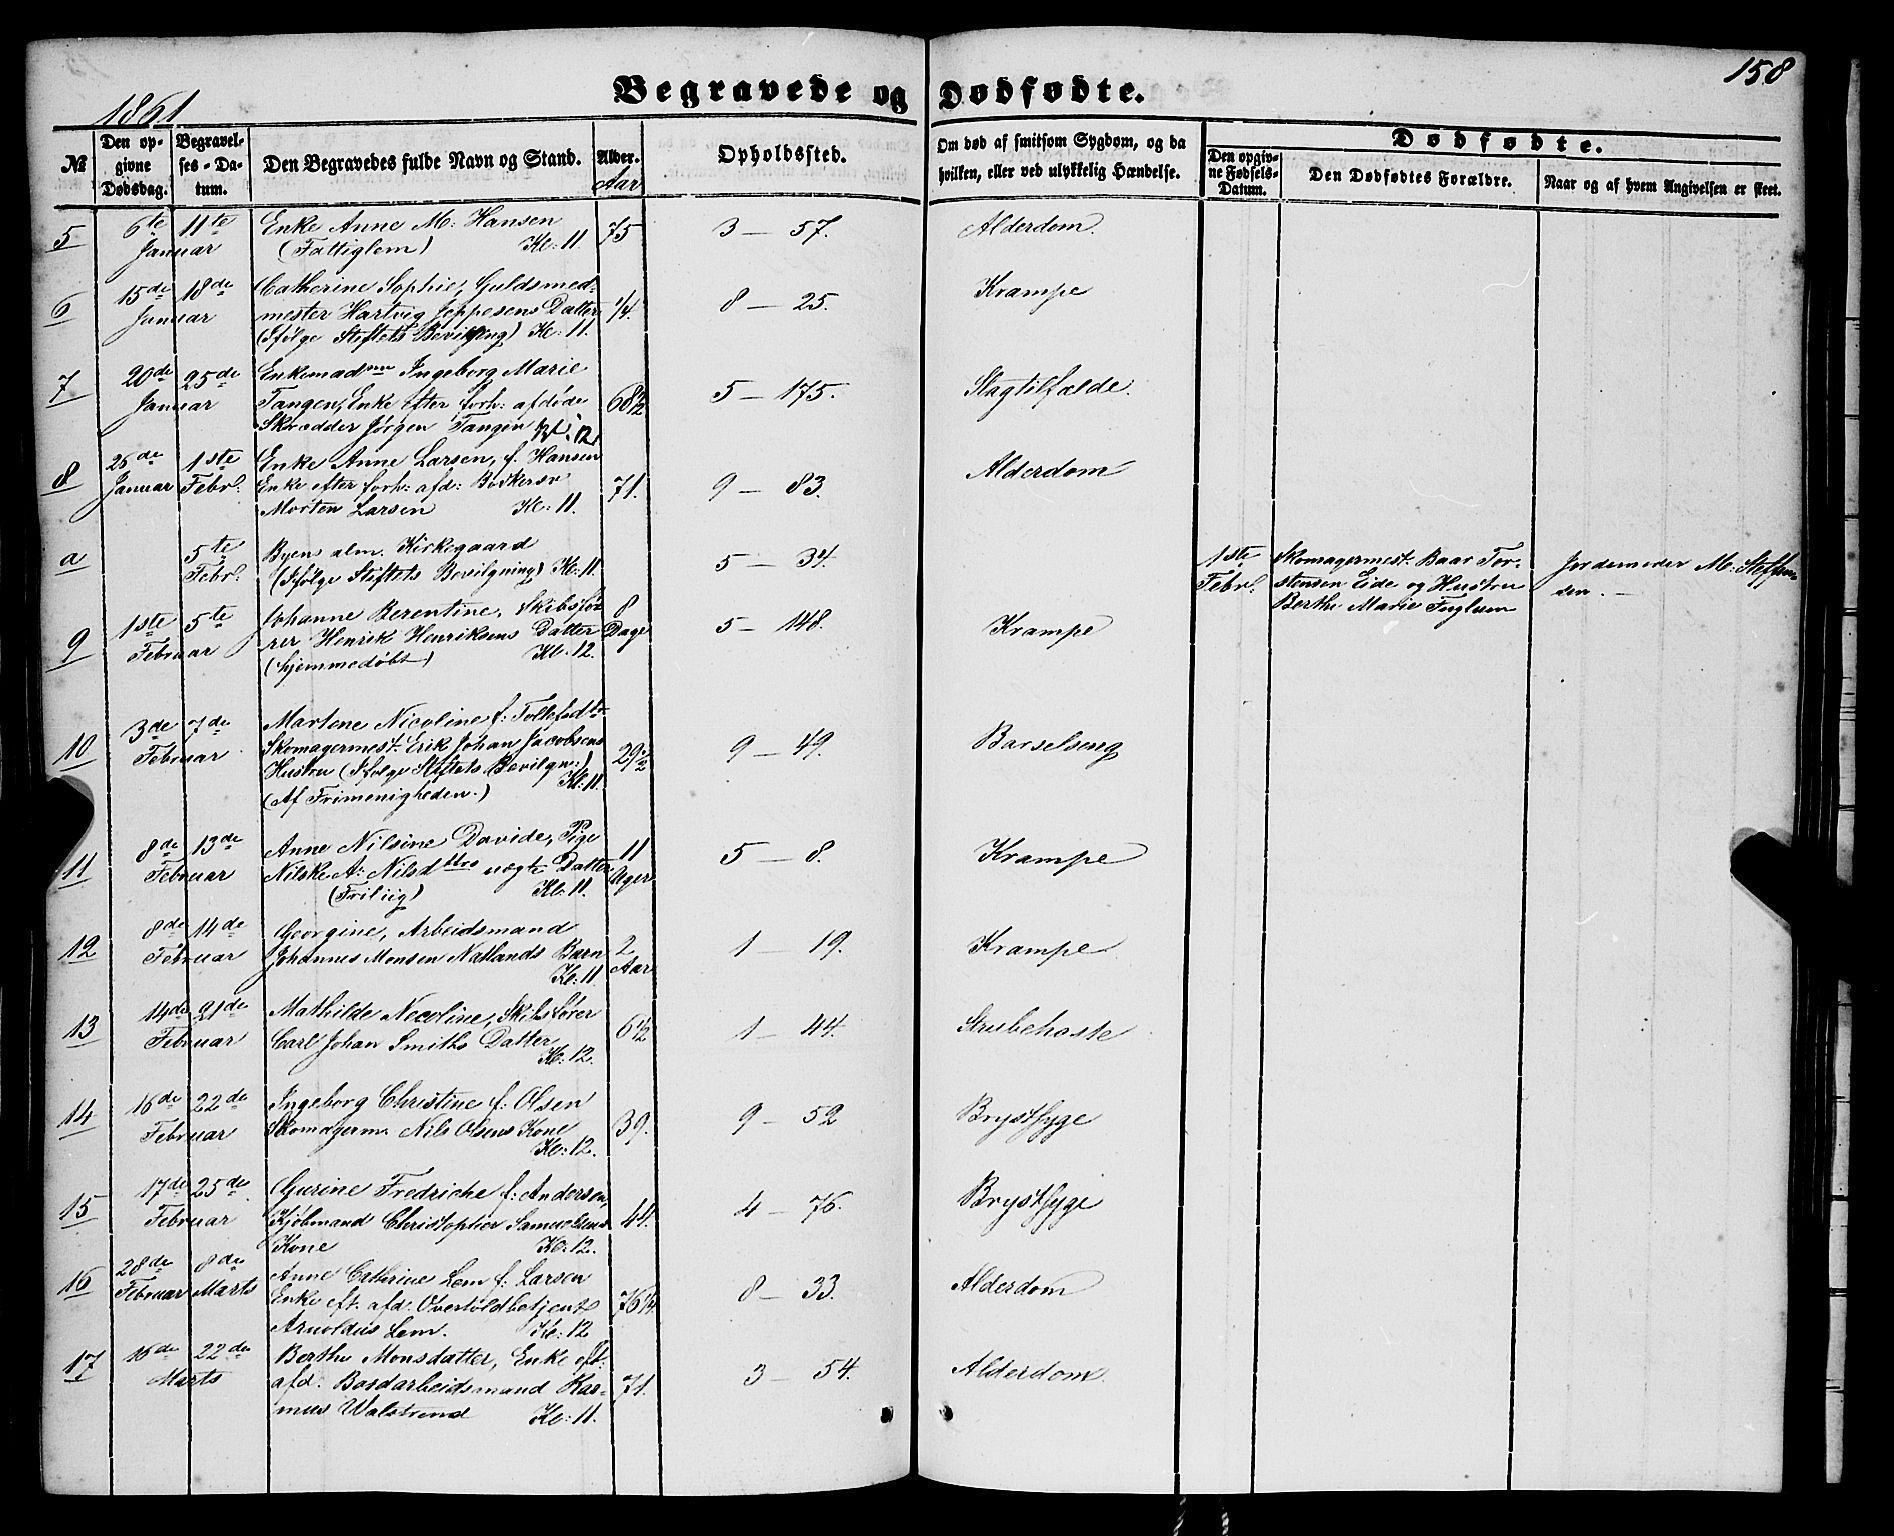 158
Begravede og Dødfødte.
1861
№
Den opgivne Dødsdag.
Begravelses-Datum.
Den Begravedes fulde Navn og Stand.
Alder.
Aar
Opholdssted.
Om død af smitsom Sygdom, og da hvilken, eller ved ulykkelig Hændelse.
Dødfødte.
Den opgivne Fødsels-Datum.
Den Dødfødtes Forældre.
Naar og af hvem Angivelsen er skeet.
5 6te 11te Enke Anne M: Hansen 75 3 — 57. Alderdom.
Januar (Fattiglem) Kl: 11
6 15de 18de Catherine Sophie, Guldsmed- 1/4. 8 — 25. Krampe
Januar mester Hartvig Jeppesens Datter
(Ifølge Stiftets Bevilgning) Kl: 11.
7 20de 25de Enkemadme Ingeborg Marie 68 1/2 5 — 175. Slagtilfælde.
Januar Tangen, Enke efter forh: afdøde
Skrædder Jørgen Tangen Kl: 12
8 26de 1ste Enke Anne Larsen, f. Hansen 71. 9 — 83. Alderdom
Januar Febr. Enke efter forh: afd:
Morten Larsen Kl: 11.
a 5te Byens alm. Kirkegaard 5 — 34. 1ste Skomagermest. Baar Tor- Jordemoder M: Steffen-
Febr. (Ifølge Stiftets Bevilgning) Kl: 11. Febr. stensen Eide og Hustru sen.
Berthe Marie
9 1ste 5te Johanne Berentine, Skibsfø- 8 Dage 5 — 148. Krampe
Februar rer Henrik Henriksens Datter
(hjemmedøbt) Kl: 12.
10 3de 7de Martene Nicoline f: 29 1/2 9 — 49. Barselseng
Februar Skomagermest. Erik Johan Jacobsens
Hustru (Ifølge Stiftets Bevilgn:)
(Af Frimenigheden.) Kl: 11.
11 8de 13de Anne Nilsine Davide, Pige 11 Uger 5 — 8. Krampe
Februar Nilske A: Nilsdttrs uægte Datter
(Frilig) Kl: 11.
12 8de 14de Georgine, Arbeidsmand 2 Aar 1 — 19. Krampe
Februar Johannes Monsen Natlands Barn
Kl: 11
13 14de 21de Mathilde Necoline, Skibsfører 6 1/2 1 — 44. Strubehoste
Februar Carl Johan Smiths Datter
Kl: 12.
14 16de 22de Ingeborg Christine f: Olsen 39. 9 — 52 Brystsyge
Februar Skomagerm. Nils Olsens Kone
Kl: 12.
15 17de 25de Gurine Fredriche f: Andersen, 44. 4 — 76. Brystsyge
Februar Kjøbmand Christopher Samuelsens
Kone Kl: 12.
16 28de 8de Anne Catherine Lem f: Larsen 76 1/4. 8 — 33. Alderdom
Februar Marts Enke eft. afd. Overtoldbetjent
Arnoldus Lem. Kl: 12
17 16de 22de Berthe Monsdatter, Enke eft: 71. 3 — 54. Alderdom.
Marts afd. Bordarbeidsmand Ras-
mus Walstrand Kl: 11.